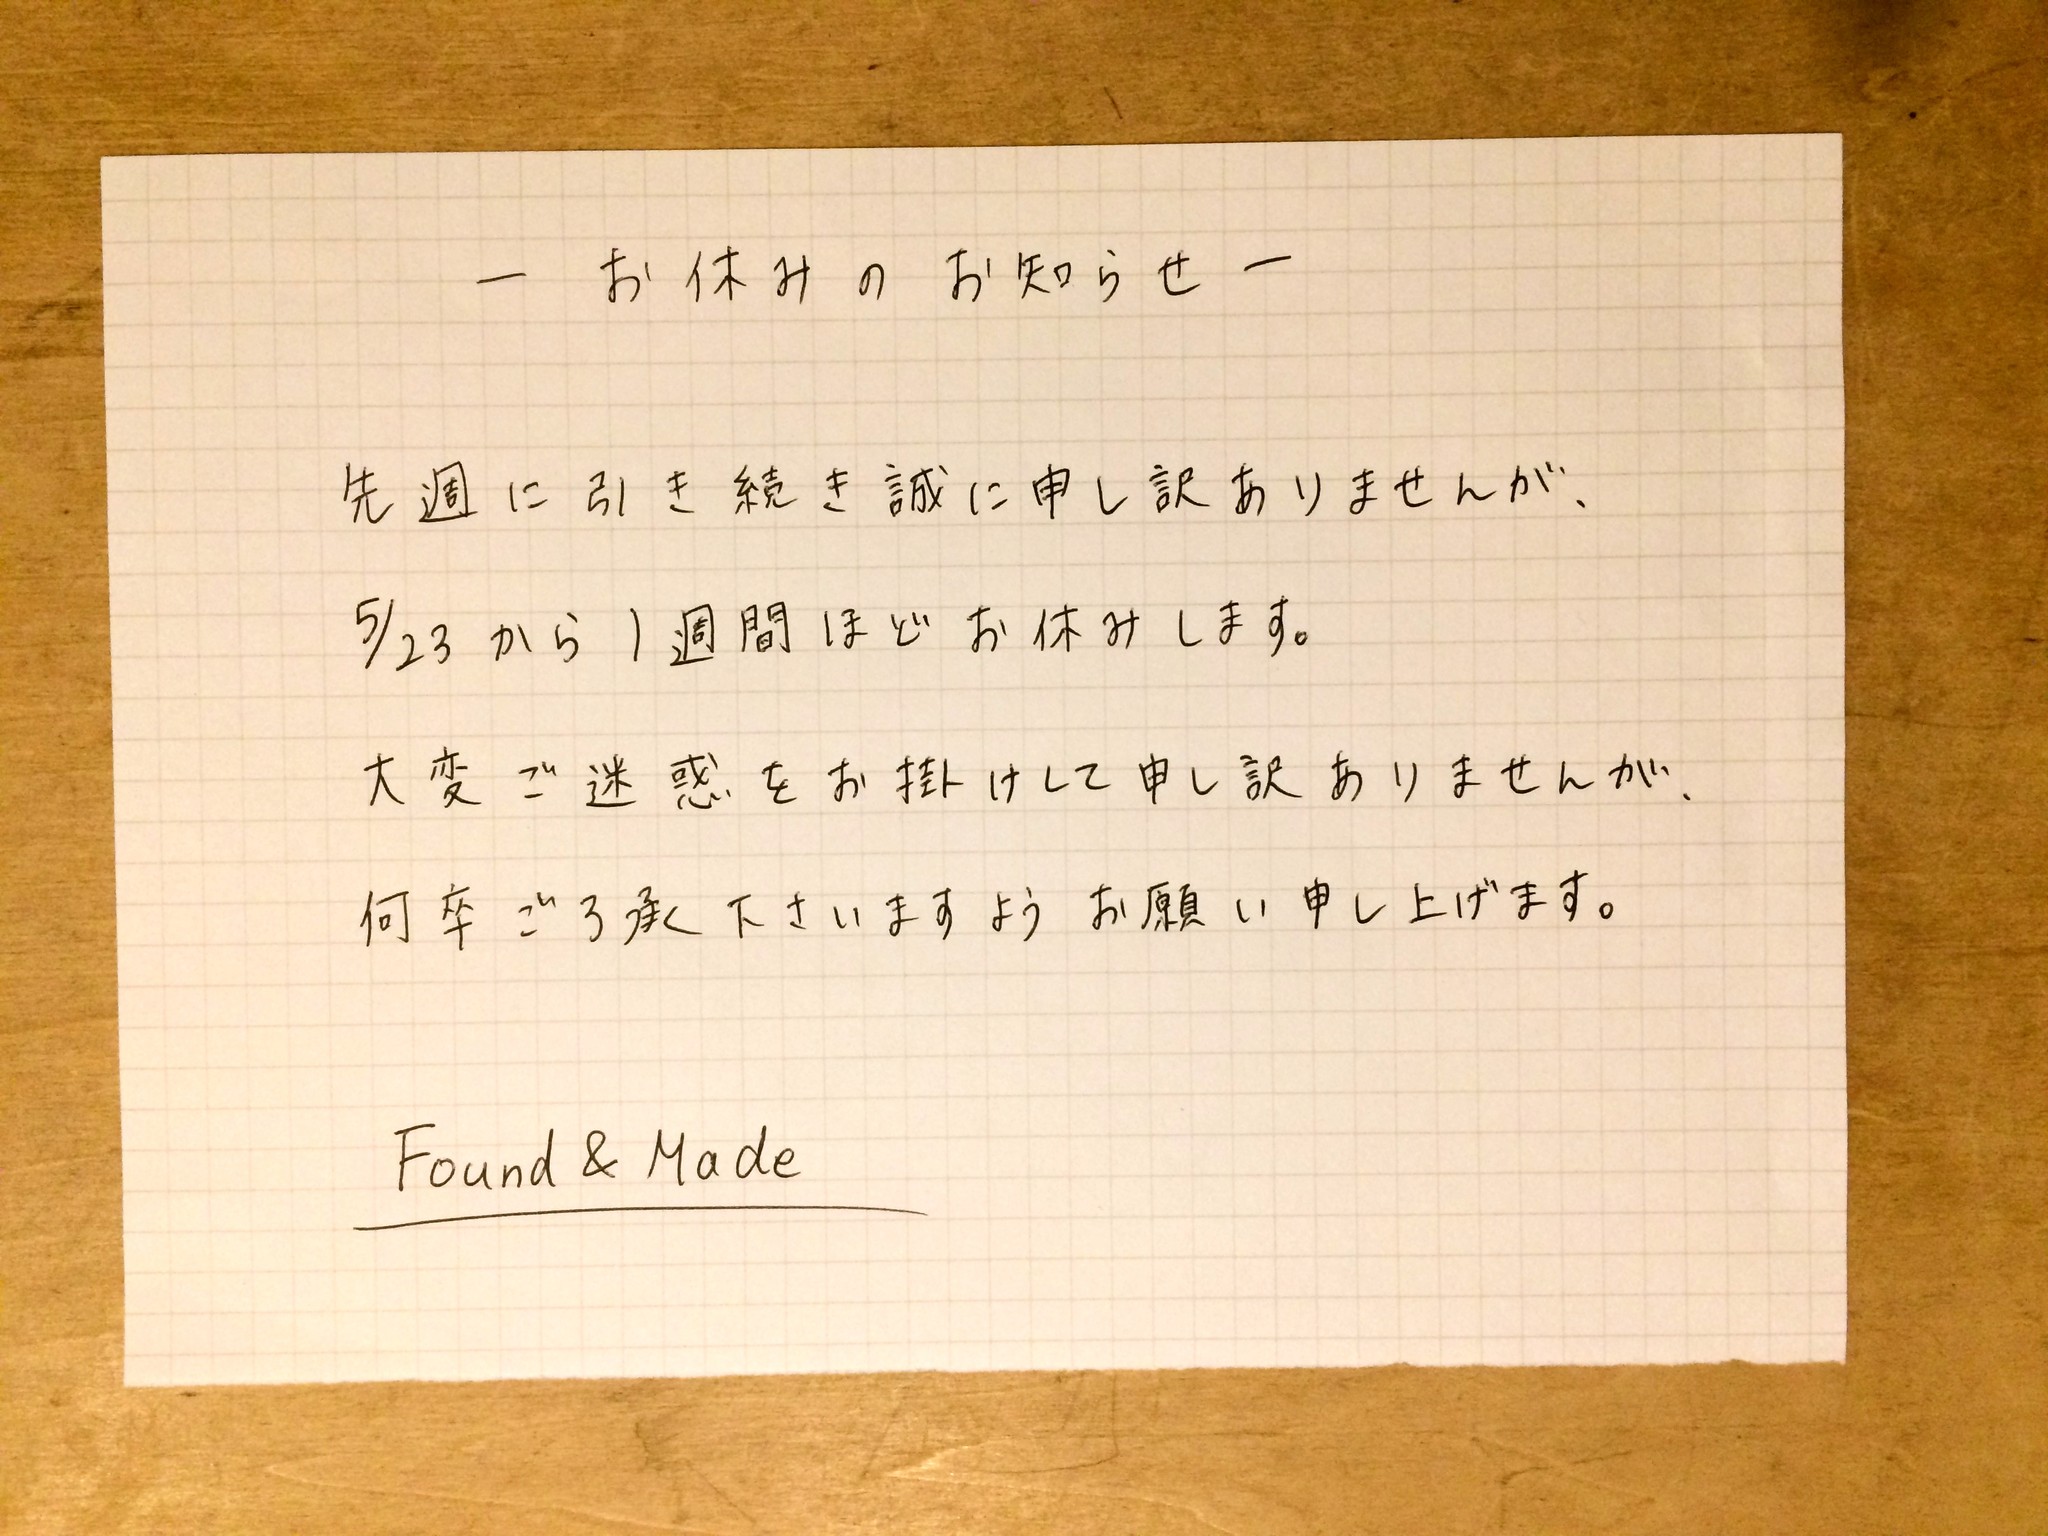 ー お休みのお知らせ ー
先週に引き続き誠に申し訳ありませんが、
5/23から1週間ほどお休みします。
大変ご迷惑をお掛けして申し訳ありませんが、
何卒ご了承下さいますようお願い申し上げます。
Found & Made